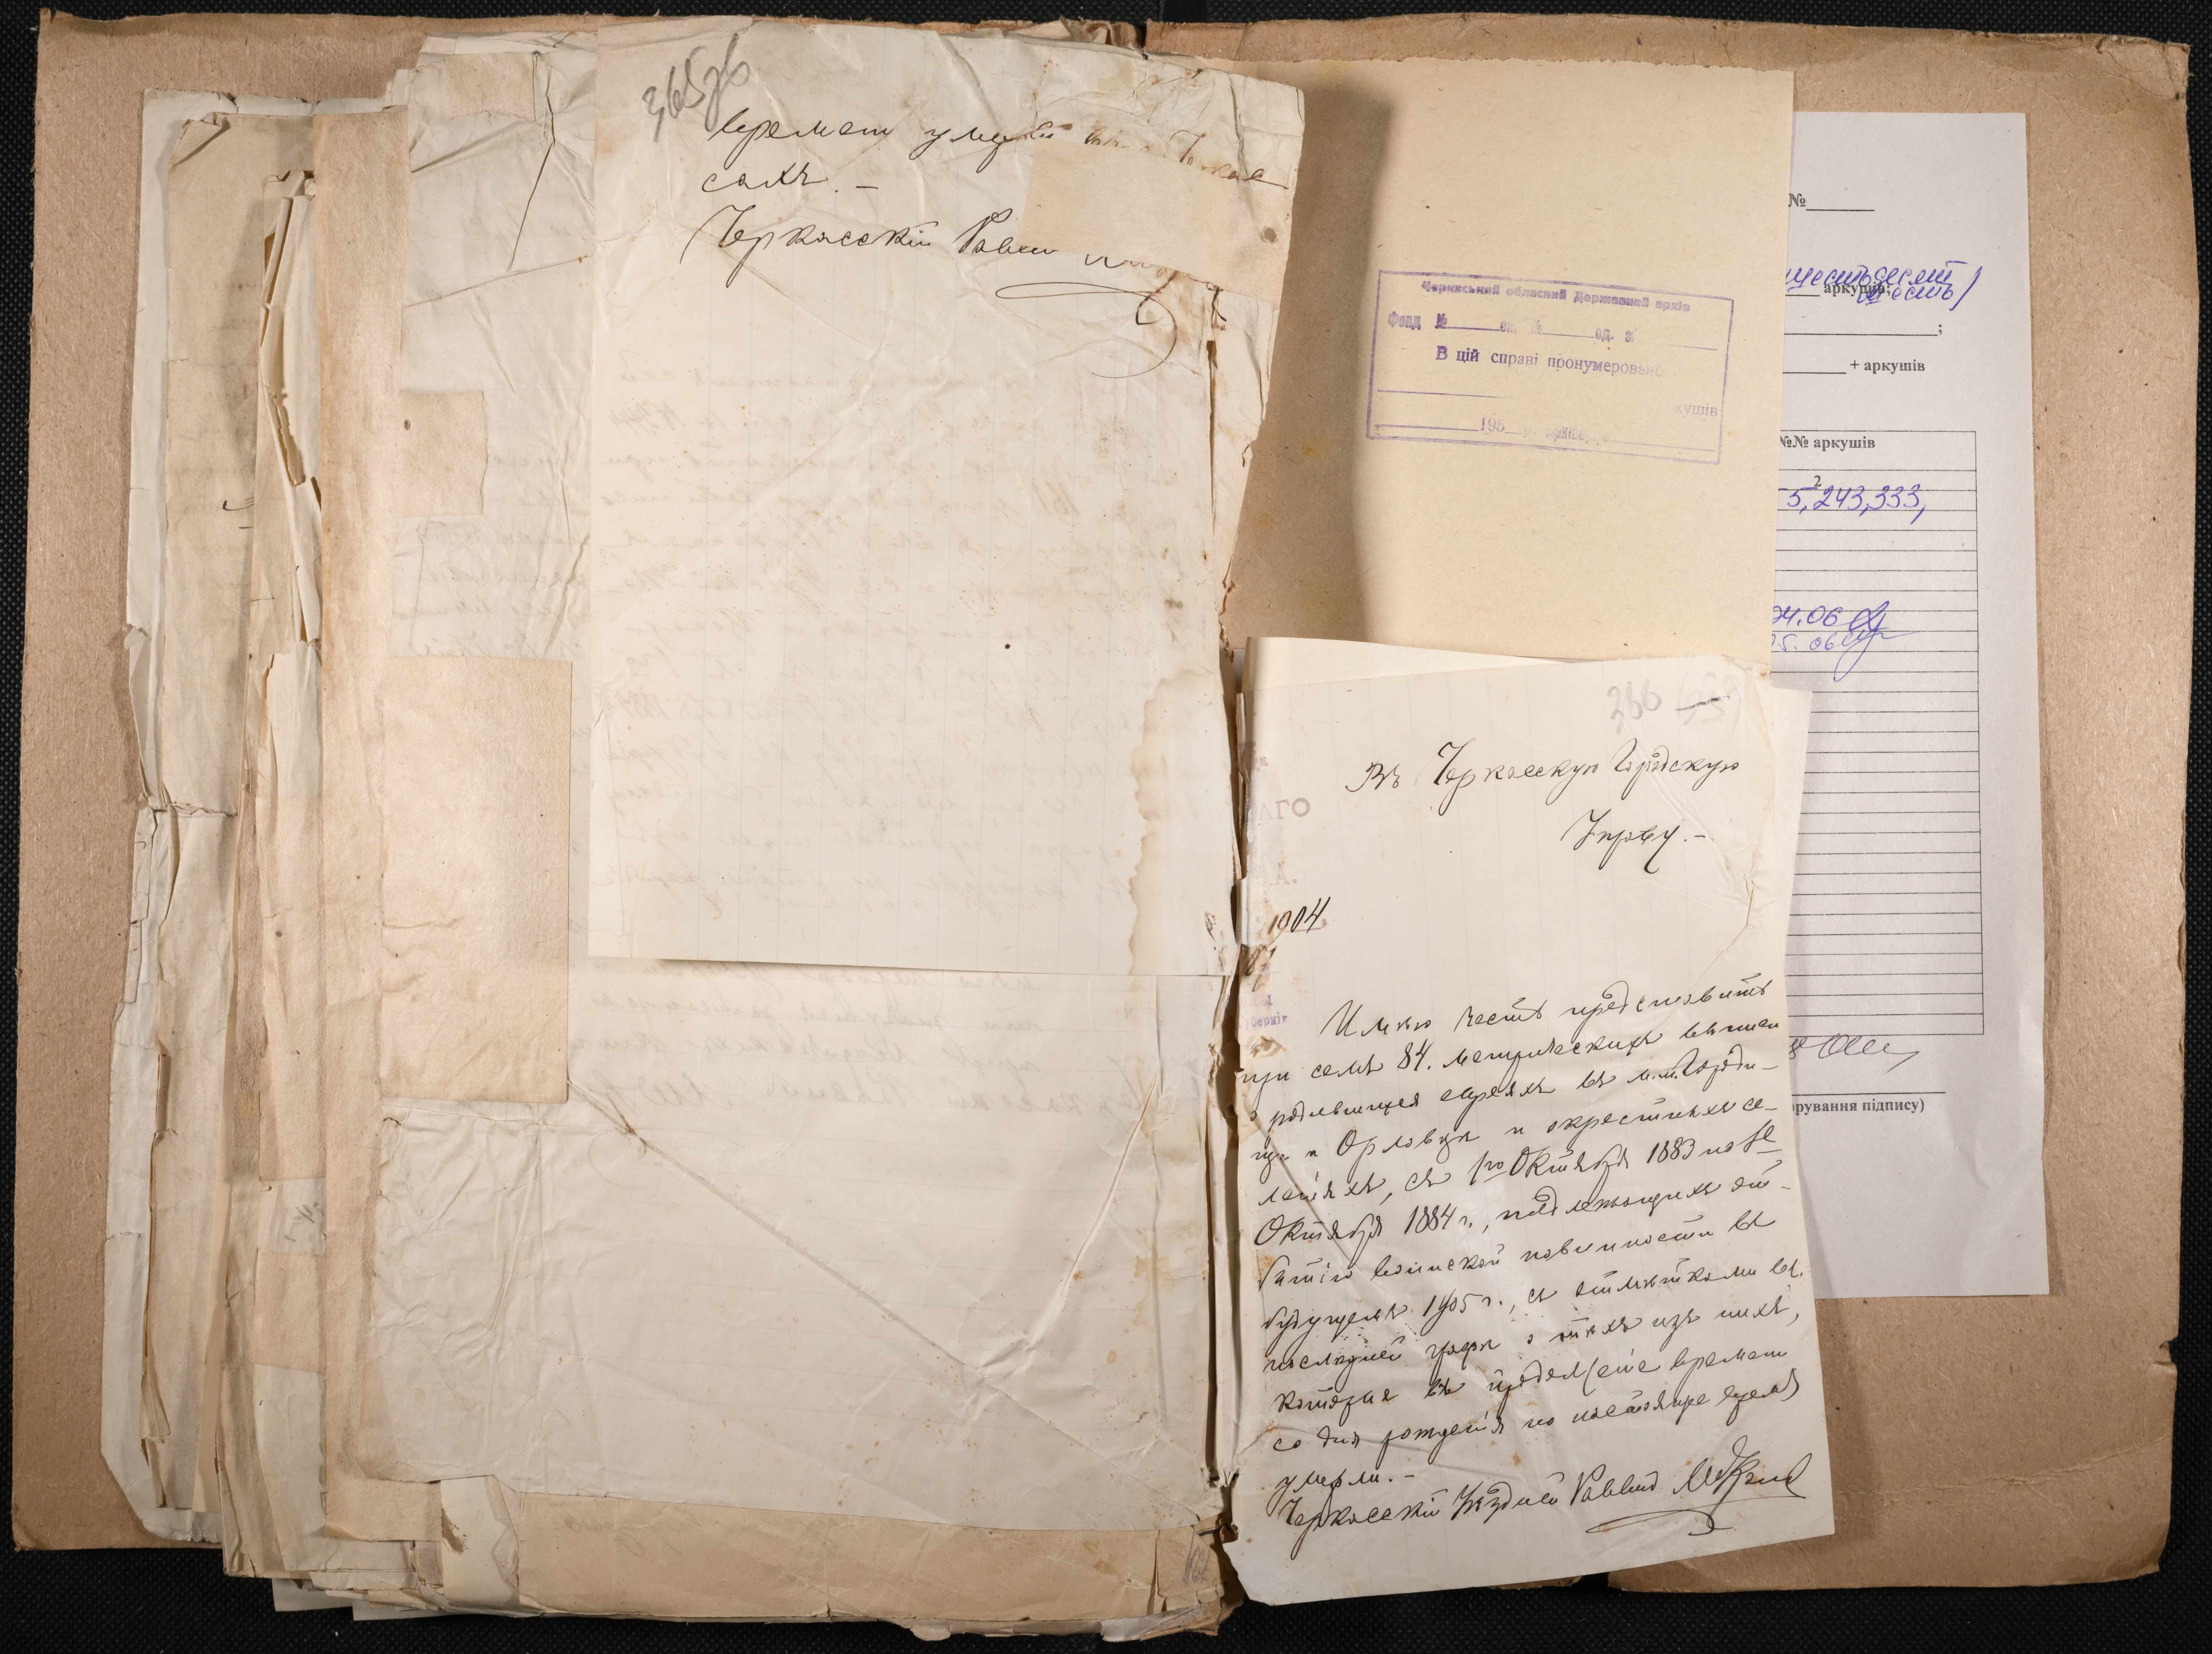 365об
времени умерли въ Черкас
сахъ. –
Черкасскій Раввин
Черкаський обласний Державний архів
Фонд № оп. № од. з
В цій справі пронумеровано
кушів
195
№
шестьдесят
аркушів;
шесть)
;
+ аркушів
№№ аркушів
2
5, 243, 333,
04.06
05.06
рування підпису)
366
Въ Черкасскую Городскую
Управу. –
АГО
А.
1904
Имѣю честь представить
при семъ 84. метрическихъ выписи
о родившихся евреяхъ въ м.м. Городи–
щѣ и Орловцѣ и окрестныхъ се–
леніяхъ, съ 1го Октября 1883 по 1е
Октября 1884 г., подлежащихъ от–
бытію воинской повинности въ
будущемъ 1905 г., съ отмѣтками въ
послѣдней графѣ о тѣхъ изъ нихъ,
которые въ продолженіе времени
со дня рожденія по настоящее время
умерли. –
Черкасскій Уѣздный Раввинъ